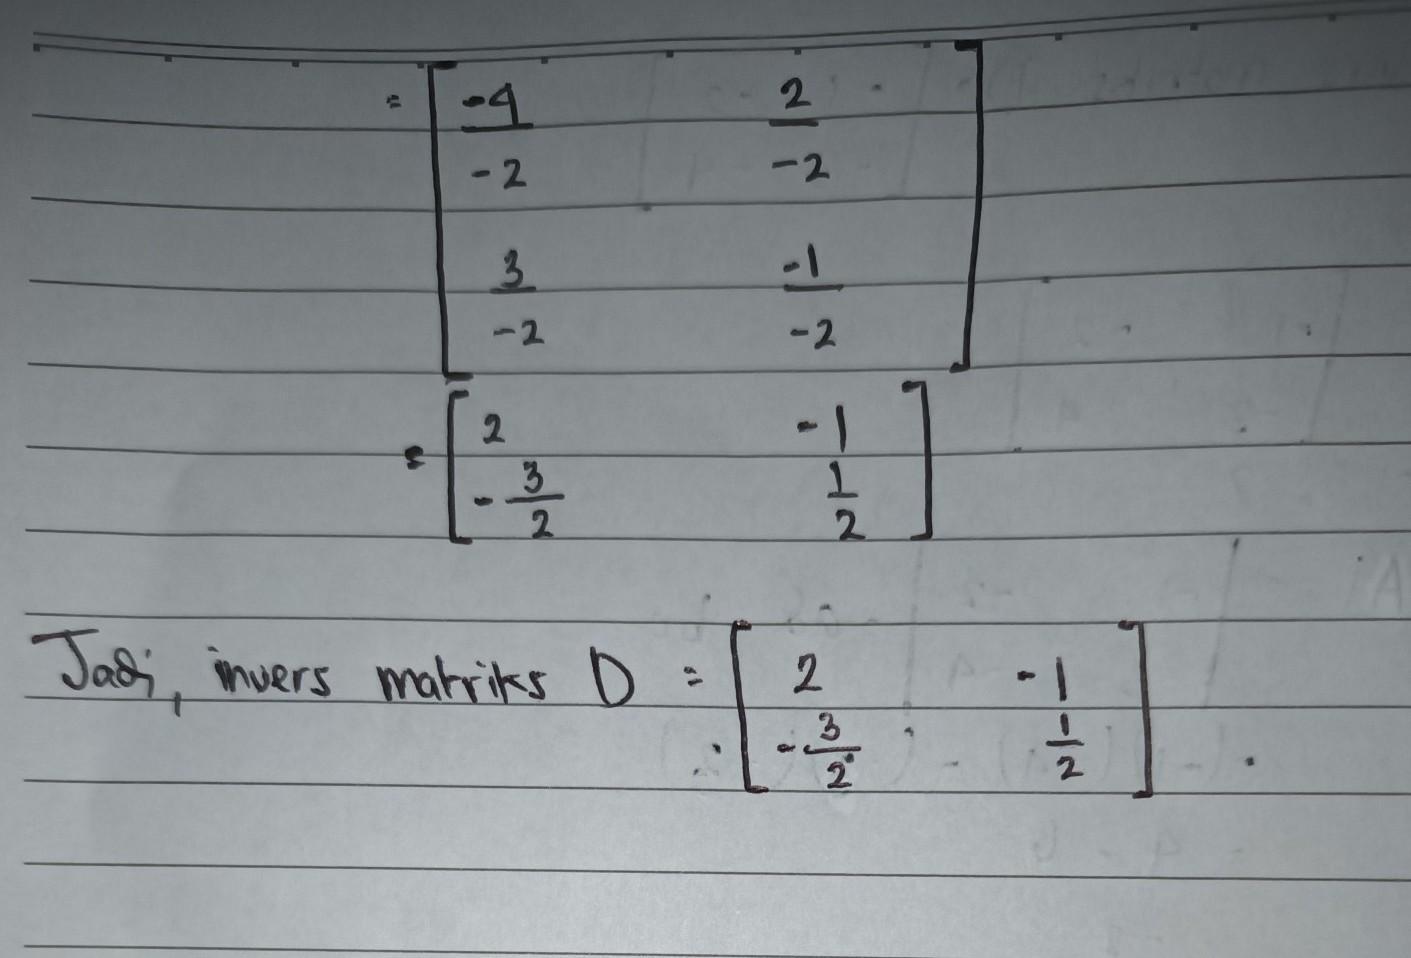 = [ -4/-2 2/-2
3/-2 -1/-2 ]
= [ 2 -1
-3/2 1/2 ]
Jadi, invers matriks D = [ 2 -1
-3/2 1/2 ] .